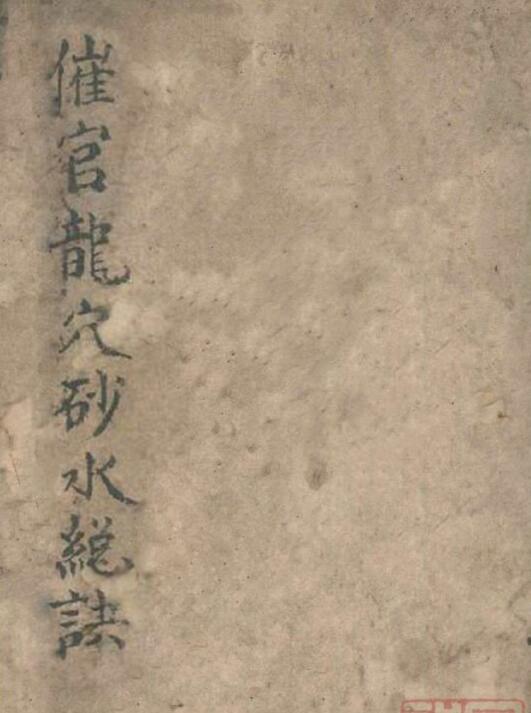 催官龍穴砂水緫訣